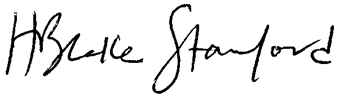 HBlake Stanford